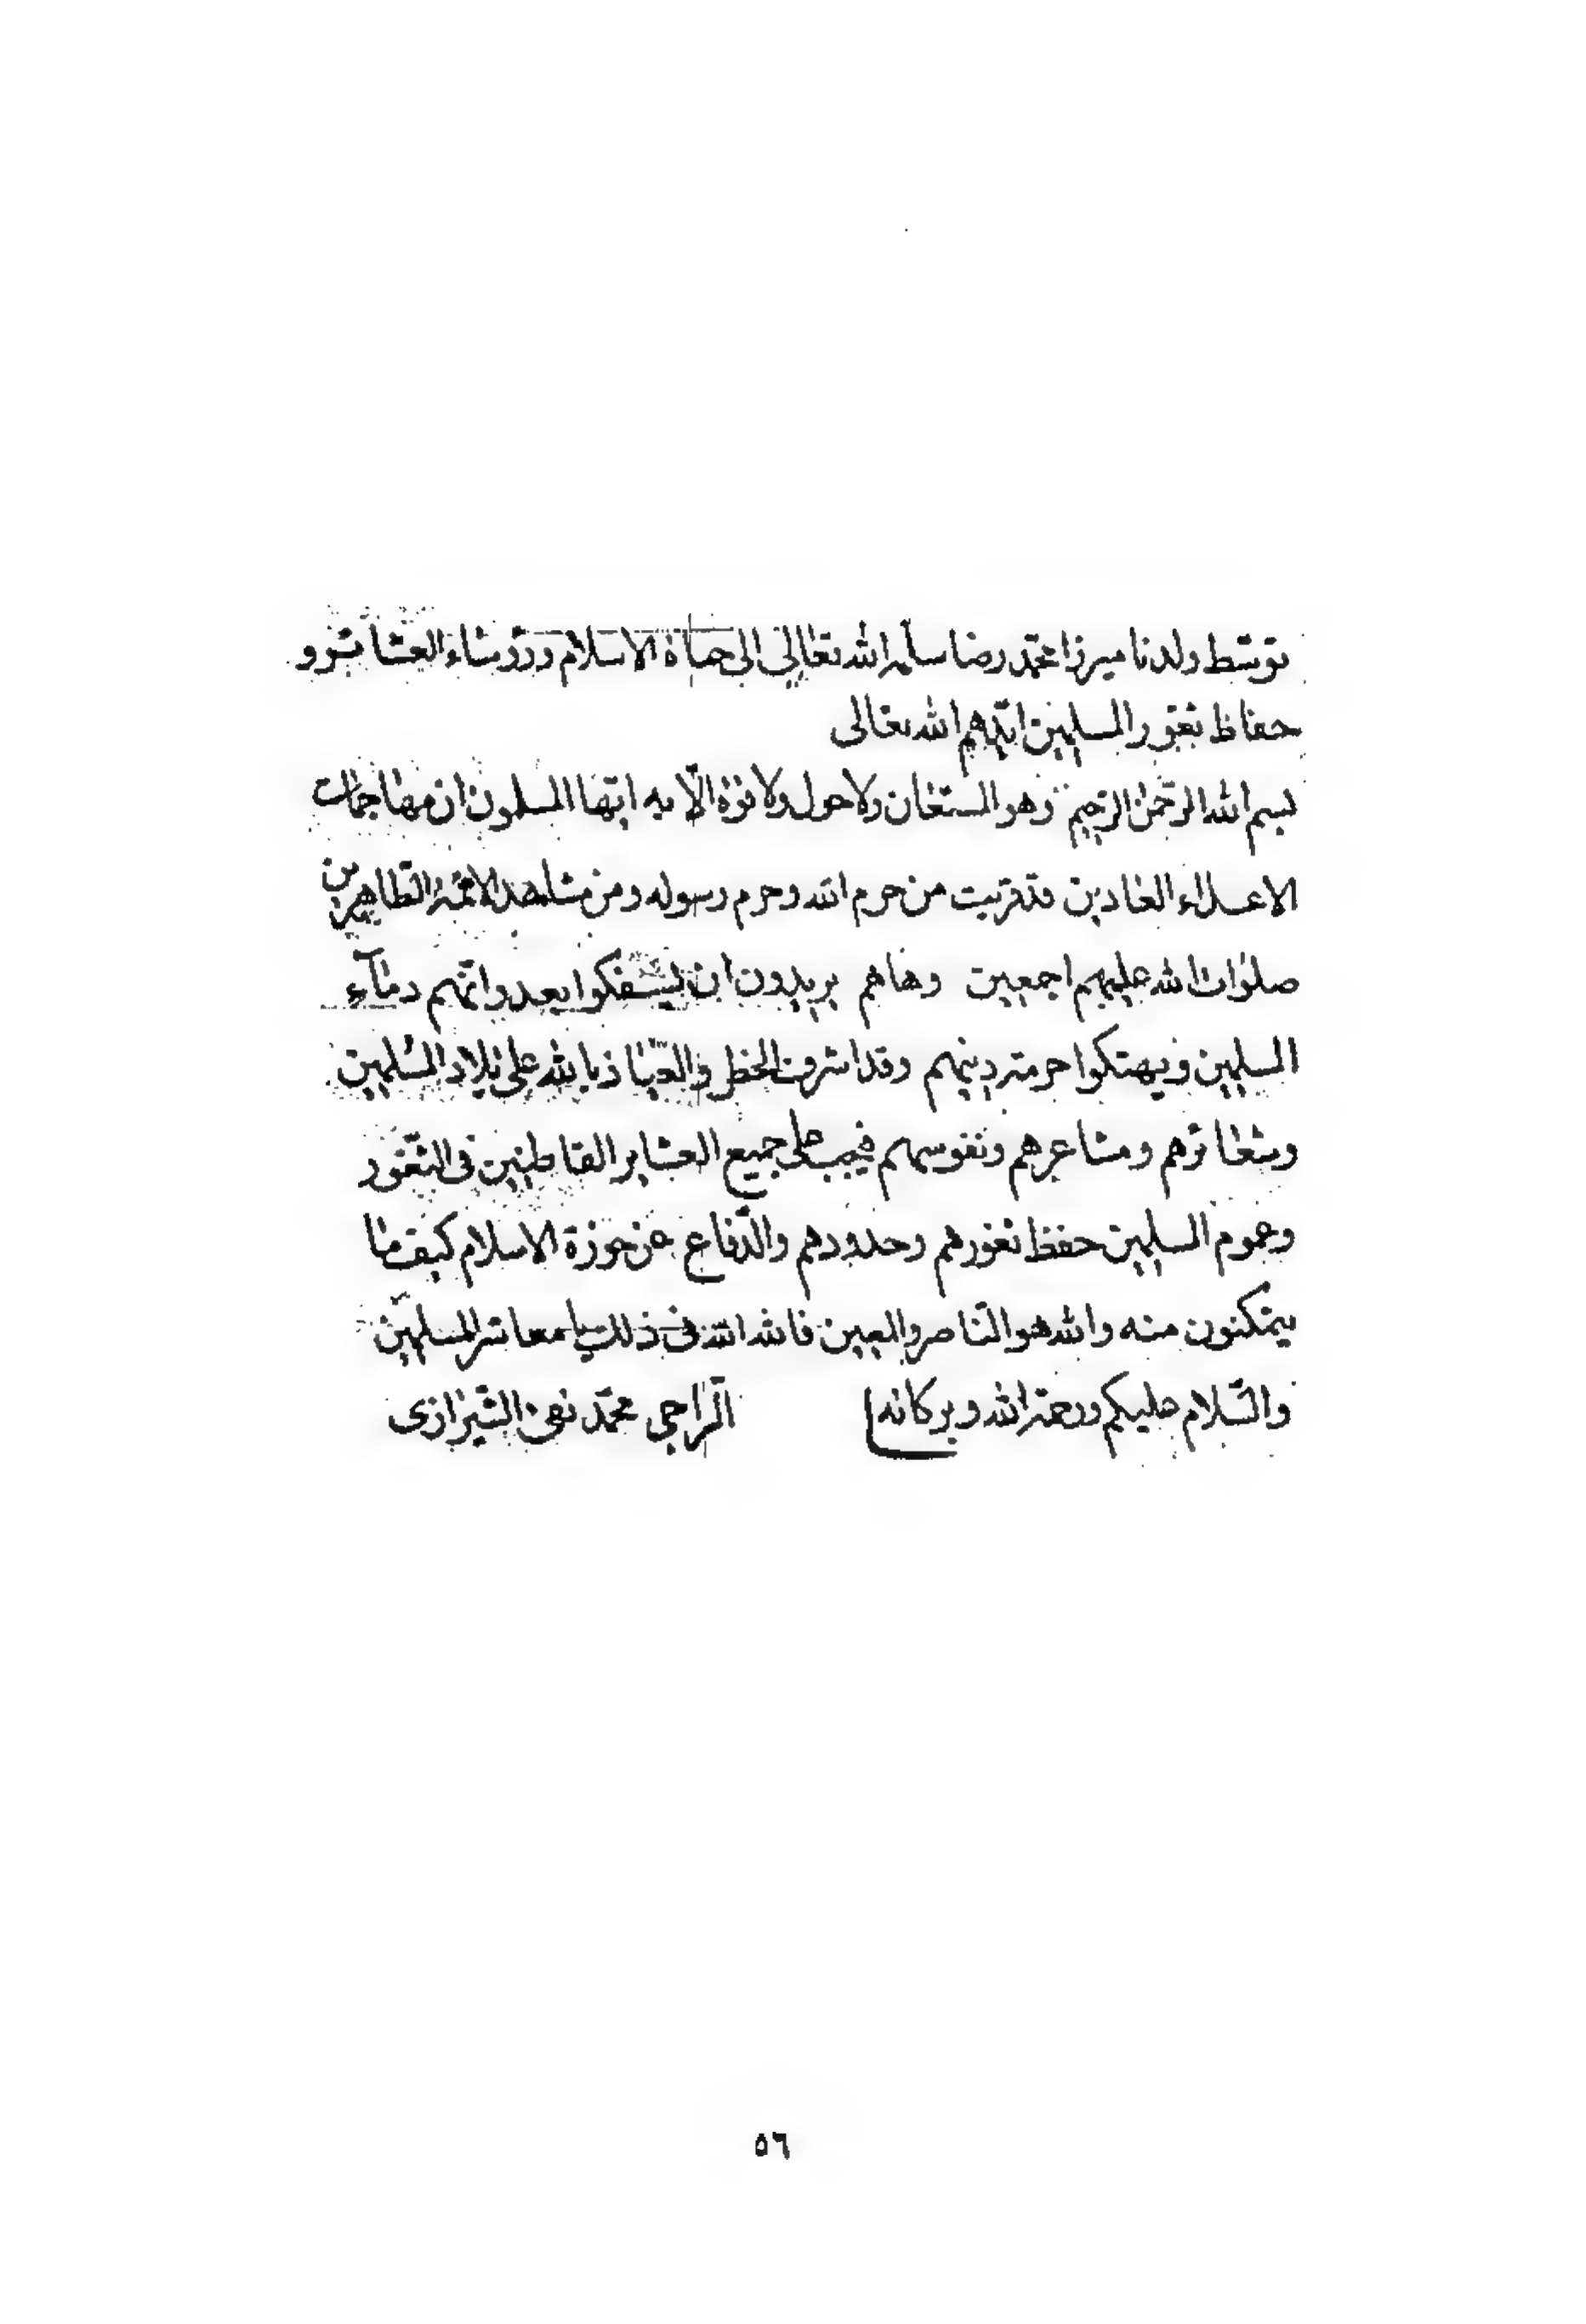 توسّط ولدنا ميرزا محمّد رضا سلّمه الله تعالى الى حماة الاسلام ورؤساء العشائر و
حفاظ ثغور المسلمين ايّدهم الله تعالى
بسم الله الرّحمٰن الرّحيم وهو المستعان ولا حول ولا قوّة الّا به ايّها المسلمون ان مهاجمات
الاعداء العادين قد قربت من حرم الله وحرم رسوله ومن مشاهد الائمّة الطّاهرين
صلوات الله عليهم اجمعين وها هم يريدون ان يسفكوا بعدوانهم دمآء
المسلمين ويهتكوا حرمة دينهم وقد اشرف الخطر والعياذ بالله على بلاد المسلمين
وشعائرهم ومشاعرهم ونفوسهم فيجب على جميع العشاير القاطنين فى الثّغور
وعموم المسلمين حفظ ثغورهم وحدودهم والدّفاع عن حوزة الاسلام كيف ما
يتمكنون منه والله هو النّاصر والمعين فالله الله فى ذلك يا معاشر المسلمين
والسّلام عليكم ورحمة الله وبركاته الرّاجى محمّد تقى الشّيرازى
٥٦